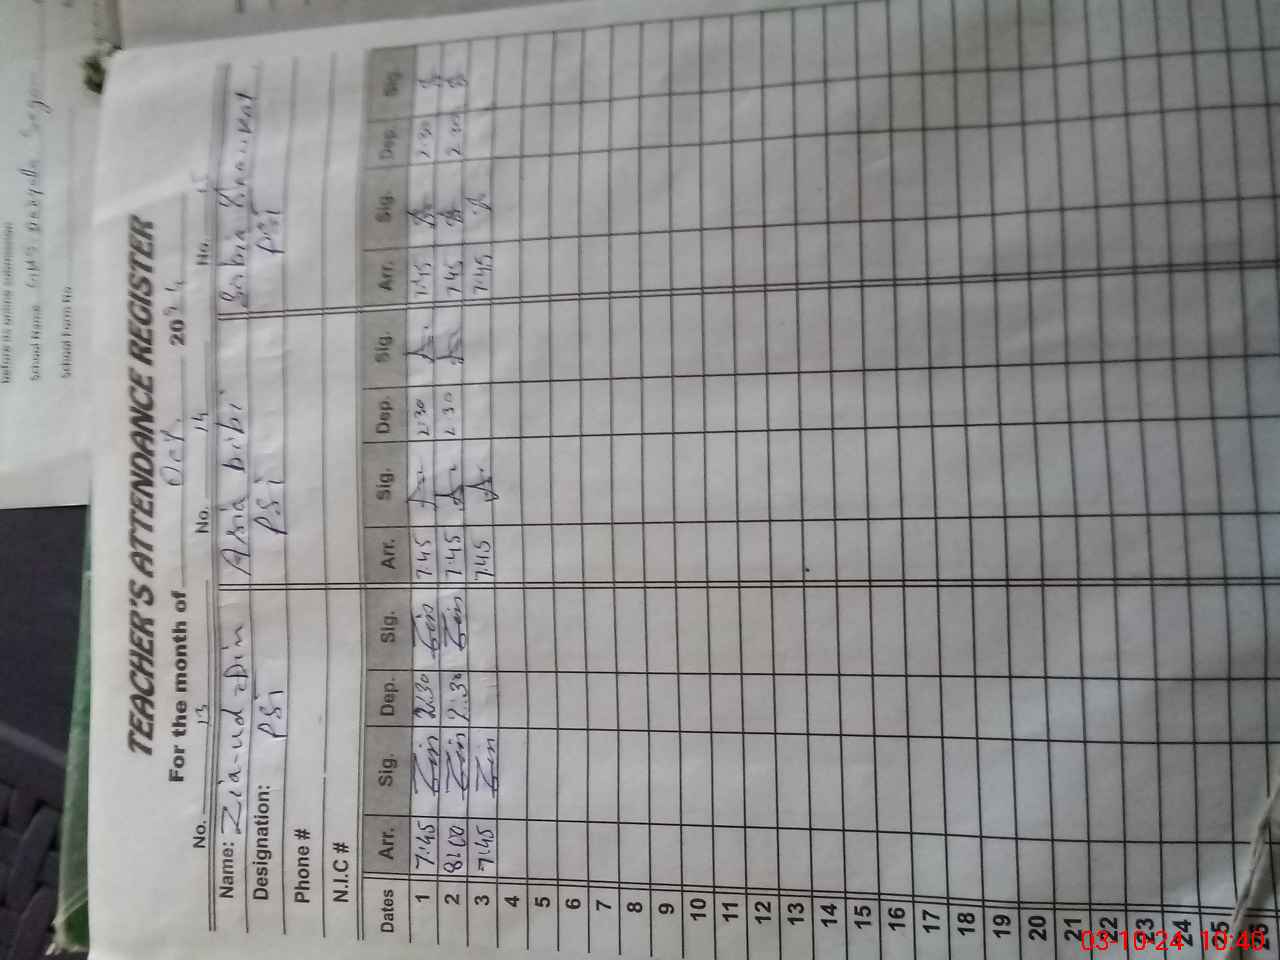 TEACHER'S ATTENDANCE REGISTER
For the month of Oct. 2024
No. 13 No. 14 No. 15
Name: Zia-ud-Din Asia bibi
Designation: PST PST PST
Phone #
N.I.C #
Dates Arr. Sig. Dep. Sig. Arr. Sig. Dep. Sig. Arr. Sig. Dep. Sig.
1 7:45 2:30 7:45 2:30 7:45 2:30
2 8:00 2:30 7:45 2:30 7:45 2:30
3 7:45 7:45 7:45
4
5
6
7
8
9
10
11
12
13
14
15
16
17
18
19
20
21
22
23
24
25
26
School Name
03-10-24 10:40